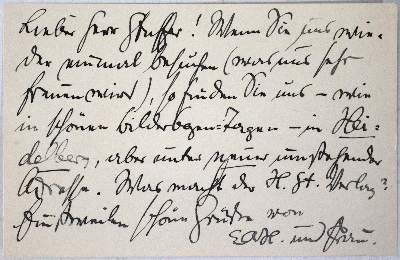 Lieber Herr ! Wenn Sie uns wie-
der einmal besuchen (was uns sehr
freuen wird), so finden Sie uns – wie
in schönen Bilderbogen-Tagen – in Hei-
delberg, aber unter neuer umstehender
Adresse. Was macht der H. St. Verlag?
Einstweilen schöne Grüße von
und Frau.